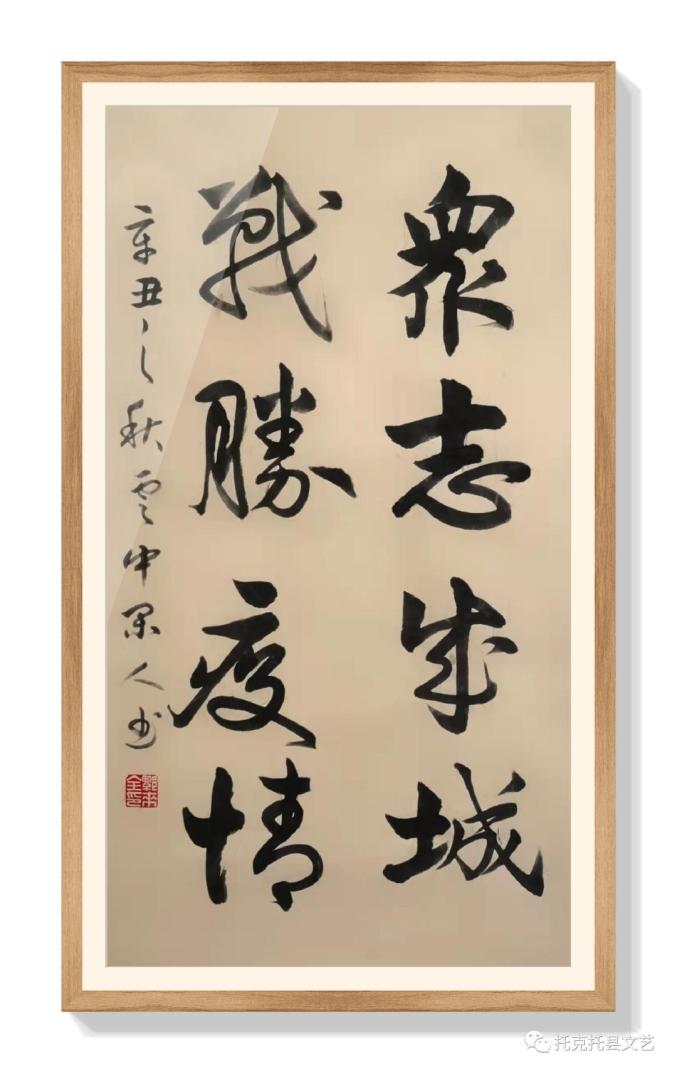 眾志成城
戰勝疫情
辛丑之秋雲中墨人书
托克托县文艺